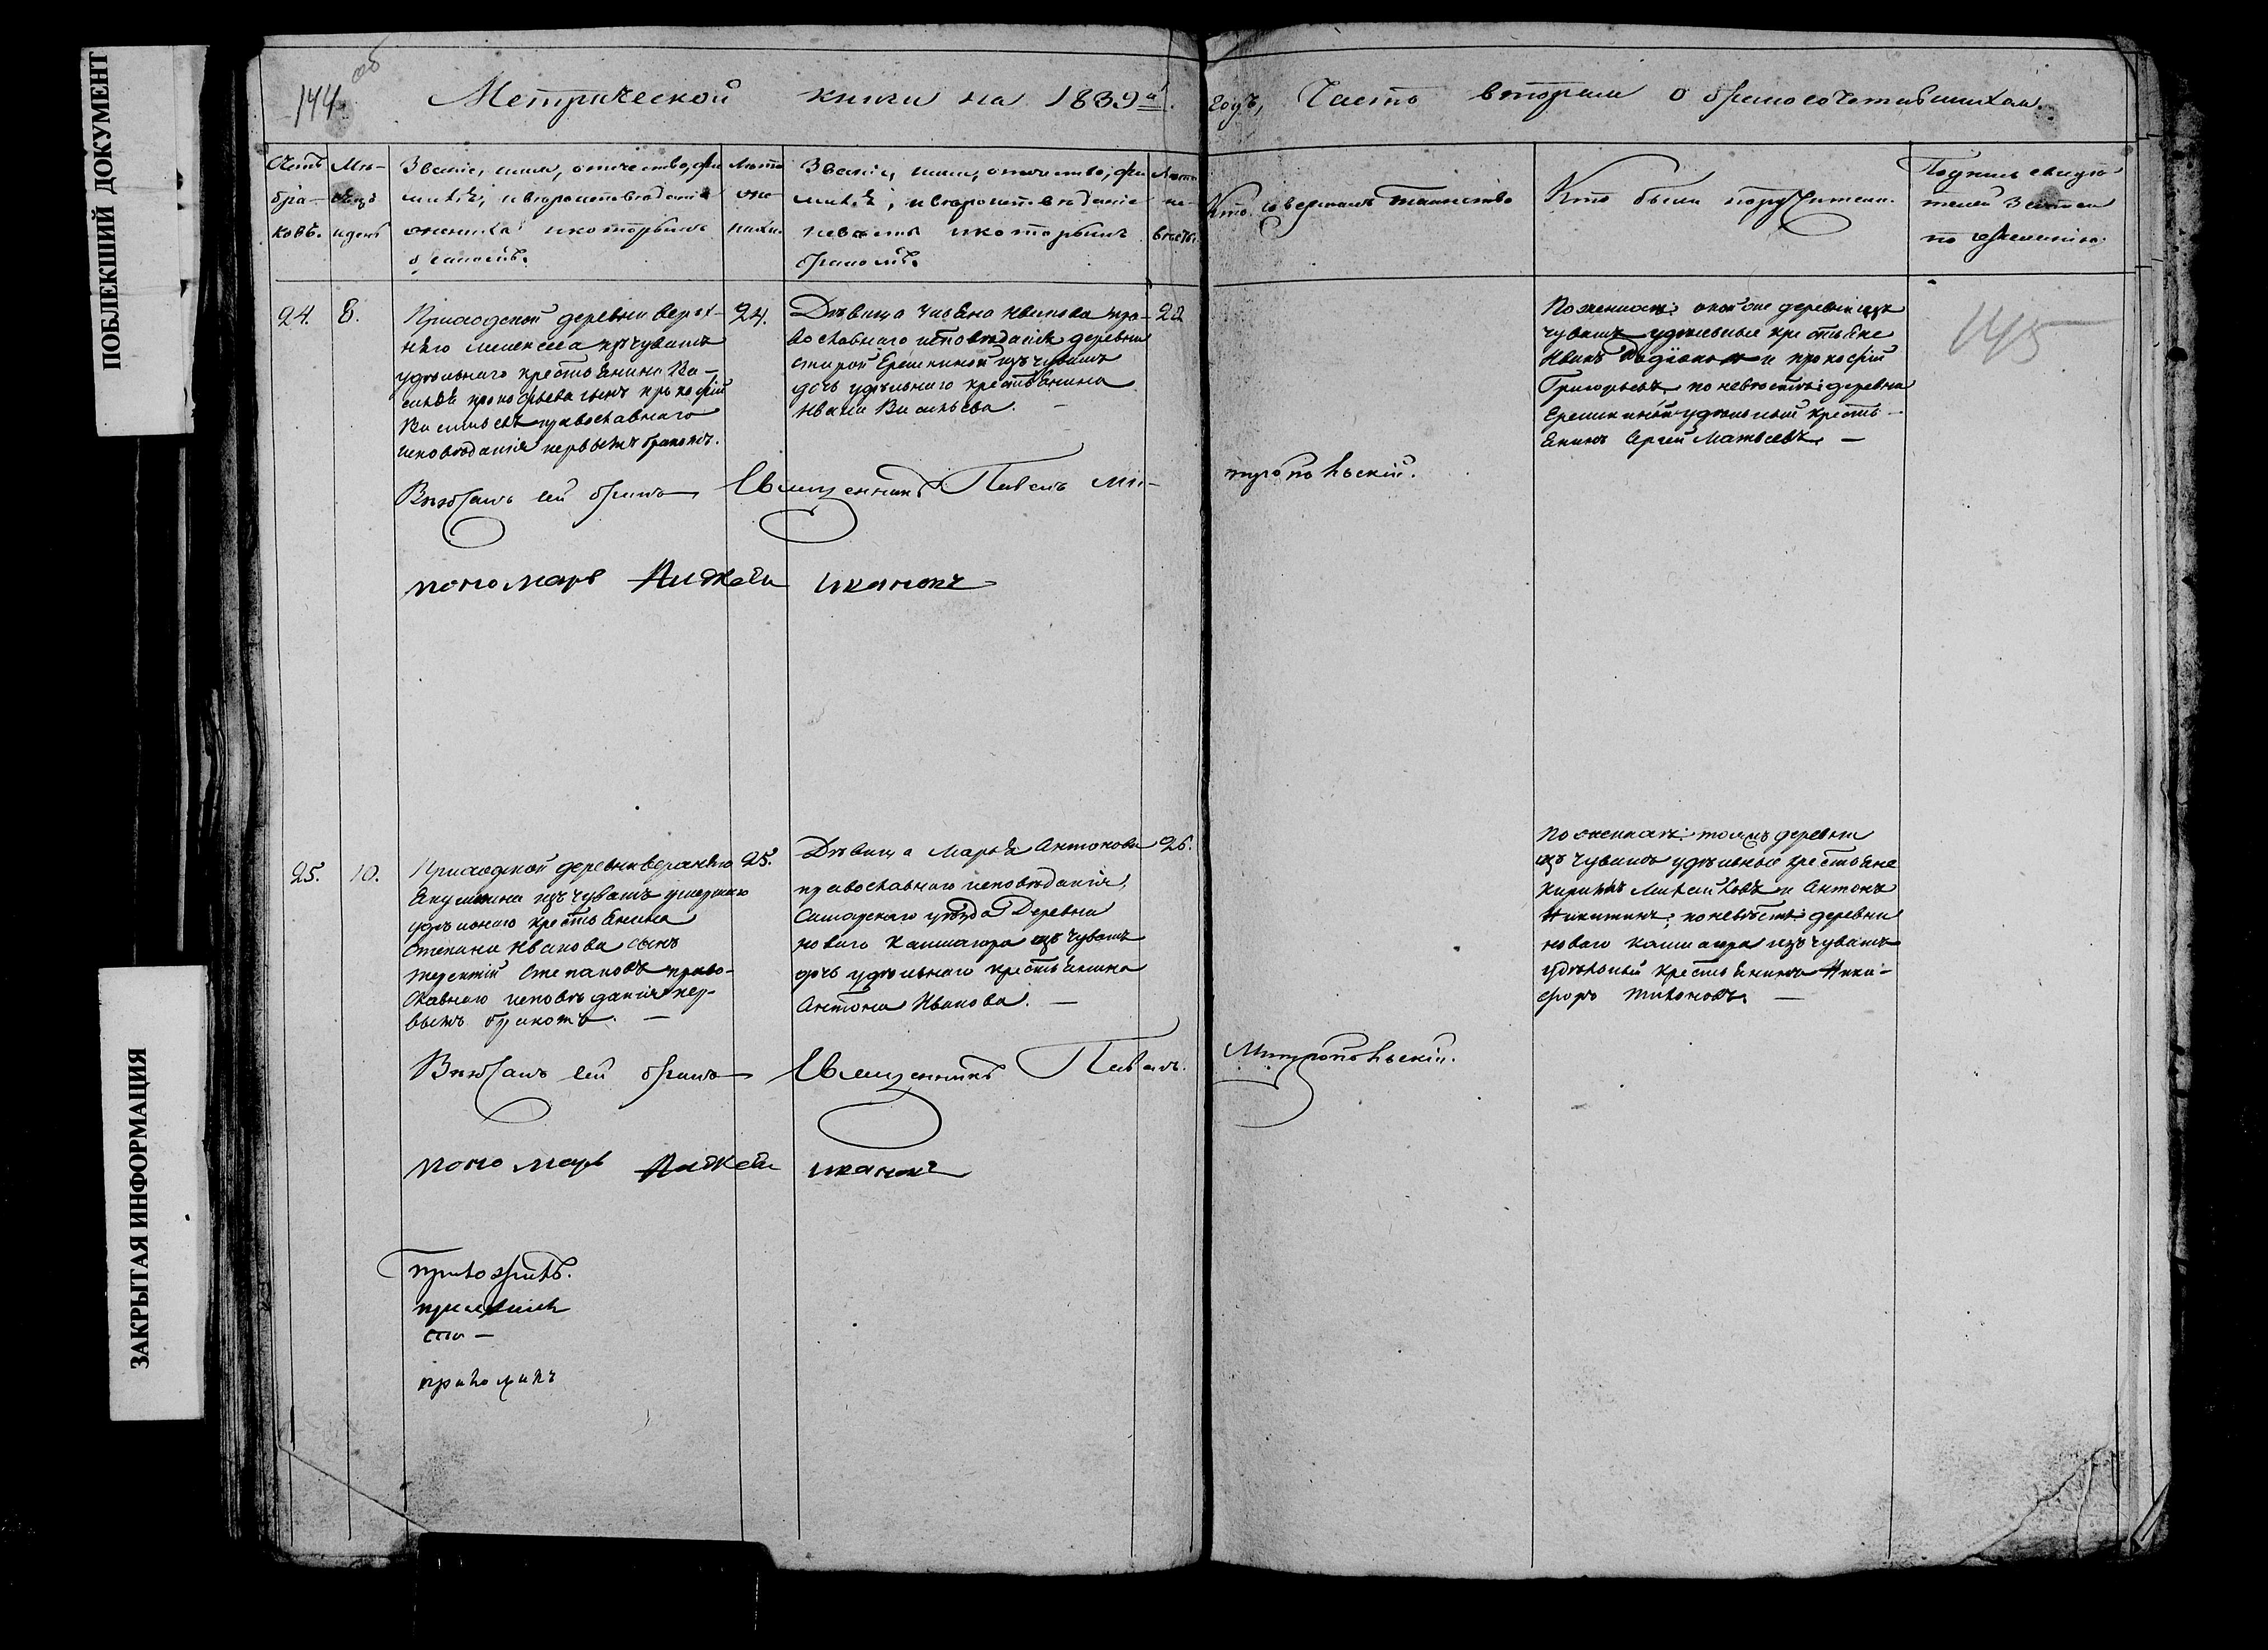 ПОБЛЕКШИЙ ДОКУМЕНТ
ЗАКРЫТАЯ ИНФОРМАЦИЯ
144. об
Метрической книги на 1839й. годъ, Часть вторая о бракосочетавшихся.
Счетъ браковъ.
Мѣсяцъ и день
Званіе, имя, отчество, фамилія, и вѣроисповѣданіе жениха и которымъ бракомъ.
Лѣта жениха.
Званіе, имя, отчество, фамилія, и вѣроисповѣданіе невѣсты и которымъ бракомъ.
Лѣта невѣсты.
Кто совершалъ таинство
Кто были поручители.
Подпись свидѣтелей записи по желанію.
24.
8.
Приходской деревни Верхняго
удѣльнаго крестьянина Василья Прокофьева сынъ Прокофій
Васильевъ православнаго
исповѣданія первымъ бракомъ.
24.
Дѣвица Ивановна православнаго исповѣданія деревни
Старой Ерешкиной изъ чувашъ
дочь удѣльнаго крестьянина
Ивана Васильева. —
22
По женихѣ: оной же деревни изъ
чувашъ удѣльные крестьяне
Иванъ Родіоновъ и Прокофій
Григорьевъ, по невѣстѣ: деревни
Ерешкиной удѣльный крестьянинъ Сергей Матвеевъ. —
145
Вѣнчалъ сей бракъ Священникъ Павелъ Митропольскій.
пономарь Ивановъ
25.
10.
Приходской деревни Верхняго
Якушкина изъ чувашъ умершаго
удѣльнаго крестьянина
Степана Иванова сынъ
Терентій Степановъ православнаго исповѣданія первымъ бракомъ. —
25.
Дѣвица Марья Антонова
православнаго исповѣданія,
Самарскаго уѣзда Деревни
новаго Кашагора изъ чувашъ
дочь удѣльнаго крестьянина
Антона Иванова. —
26.
По женихѣ: тояжъ деревни
изъ чувашъ удѣльные крестьяне
Кирилъ Михайловъ и Антонъ
Никитинъ; по невѣстѣ: деревни
новаго Кашагора изъ чувашъ
удѣльный крестьянинъ Никифоръ Тихоновъ. —
Вѣнчалъ сей бракъ Священникъ Павелъ Митропольскій.
пономарь Ивановъ